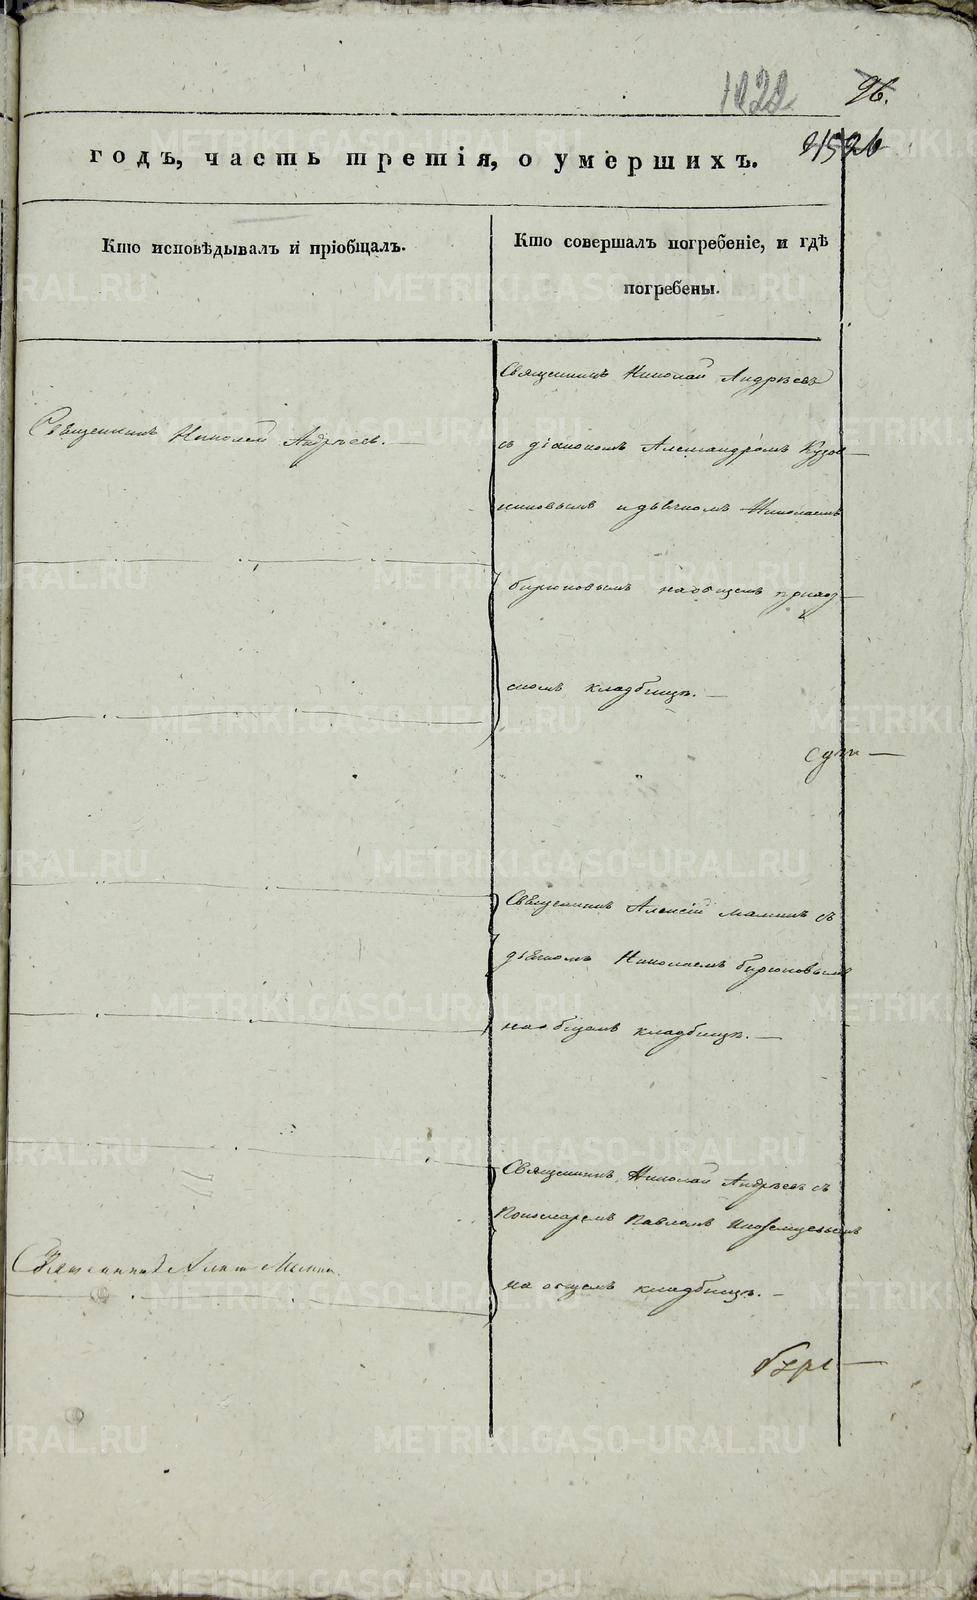 1822 96.
годъ, часть третія, о умершихъ.
Кто исповѣдывалъ и пріобщалъ.
Кто совершалъ погребеніе, и гдѣ
погребены.
Священникъ Николай Андреевъ. —
Священникъ Николай Андреевъ
съ діакономъ Александромъ
и дьячкомъ Николаемъ
бирюковымъ на общемъ приход
скомъ кладбищѣ. —
Священникъ Алексій Малинъ съ
дьячкомъ Николаемъ бирюковымъ
на общемъ кладбищѣ. —
Священникъ Николай Андреевъ съ
Пономаремъ Павломъ
на общемъ кладбищѣ. —
Священникъ
METRIKI.GASO-URAL.RU